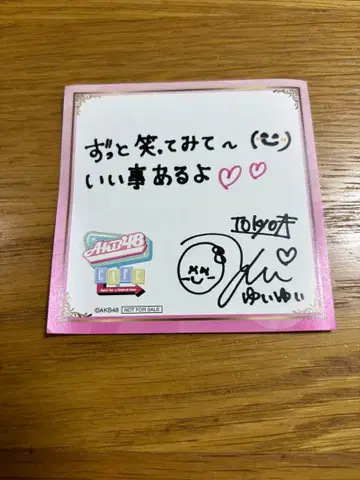 ずっと笑ってみて〜
いい事あるよ♡♡
TOKYO店
ゆいゆい
AKB48
CAFE
©AKB48 NOT FOR SALE